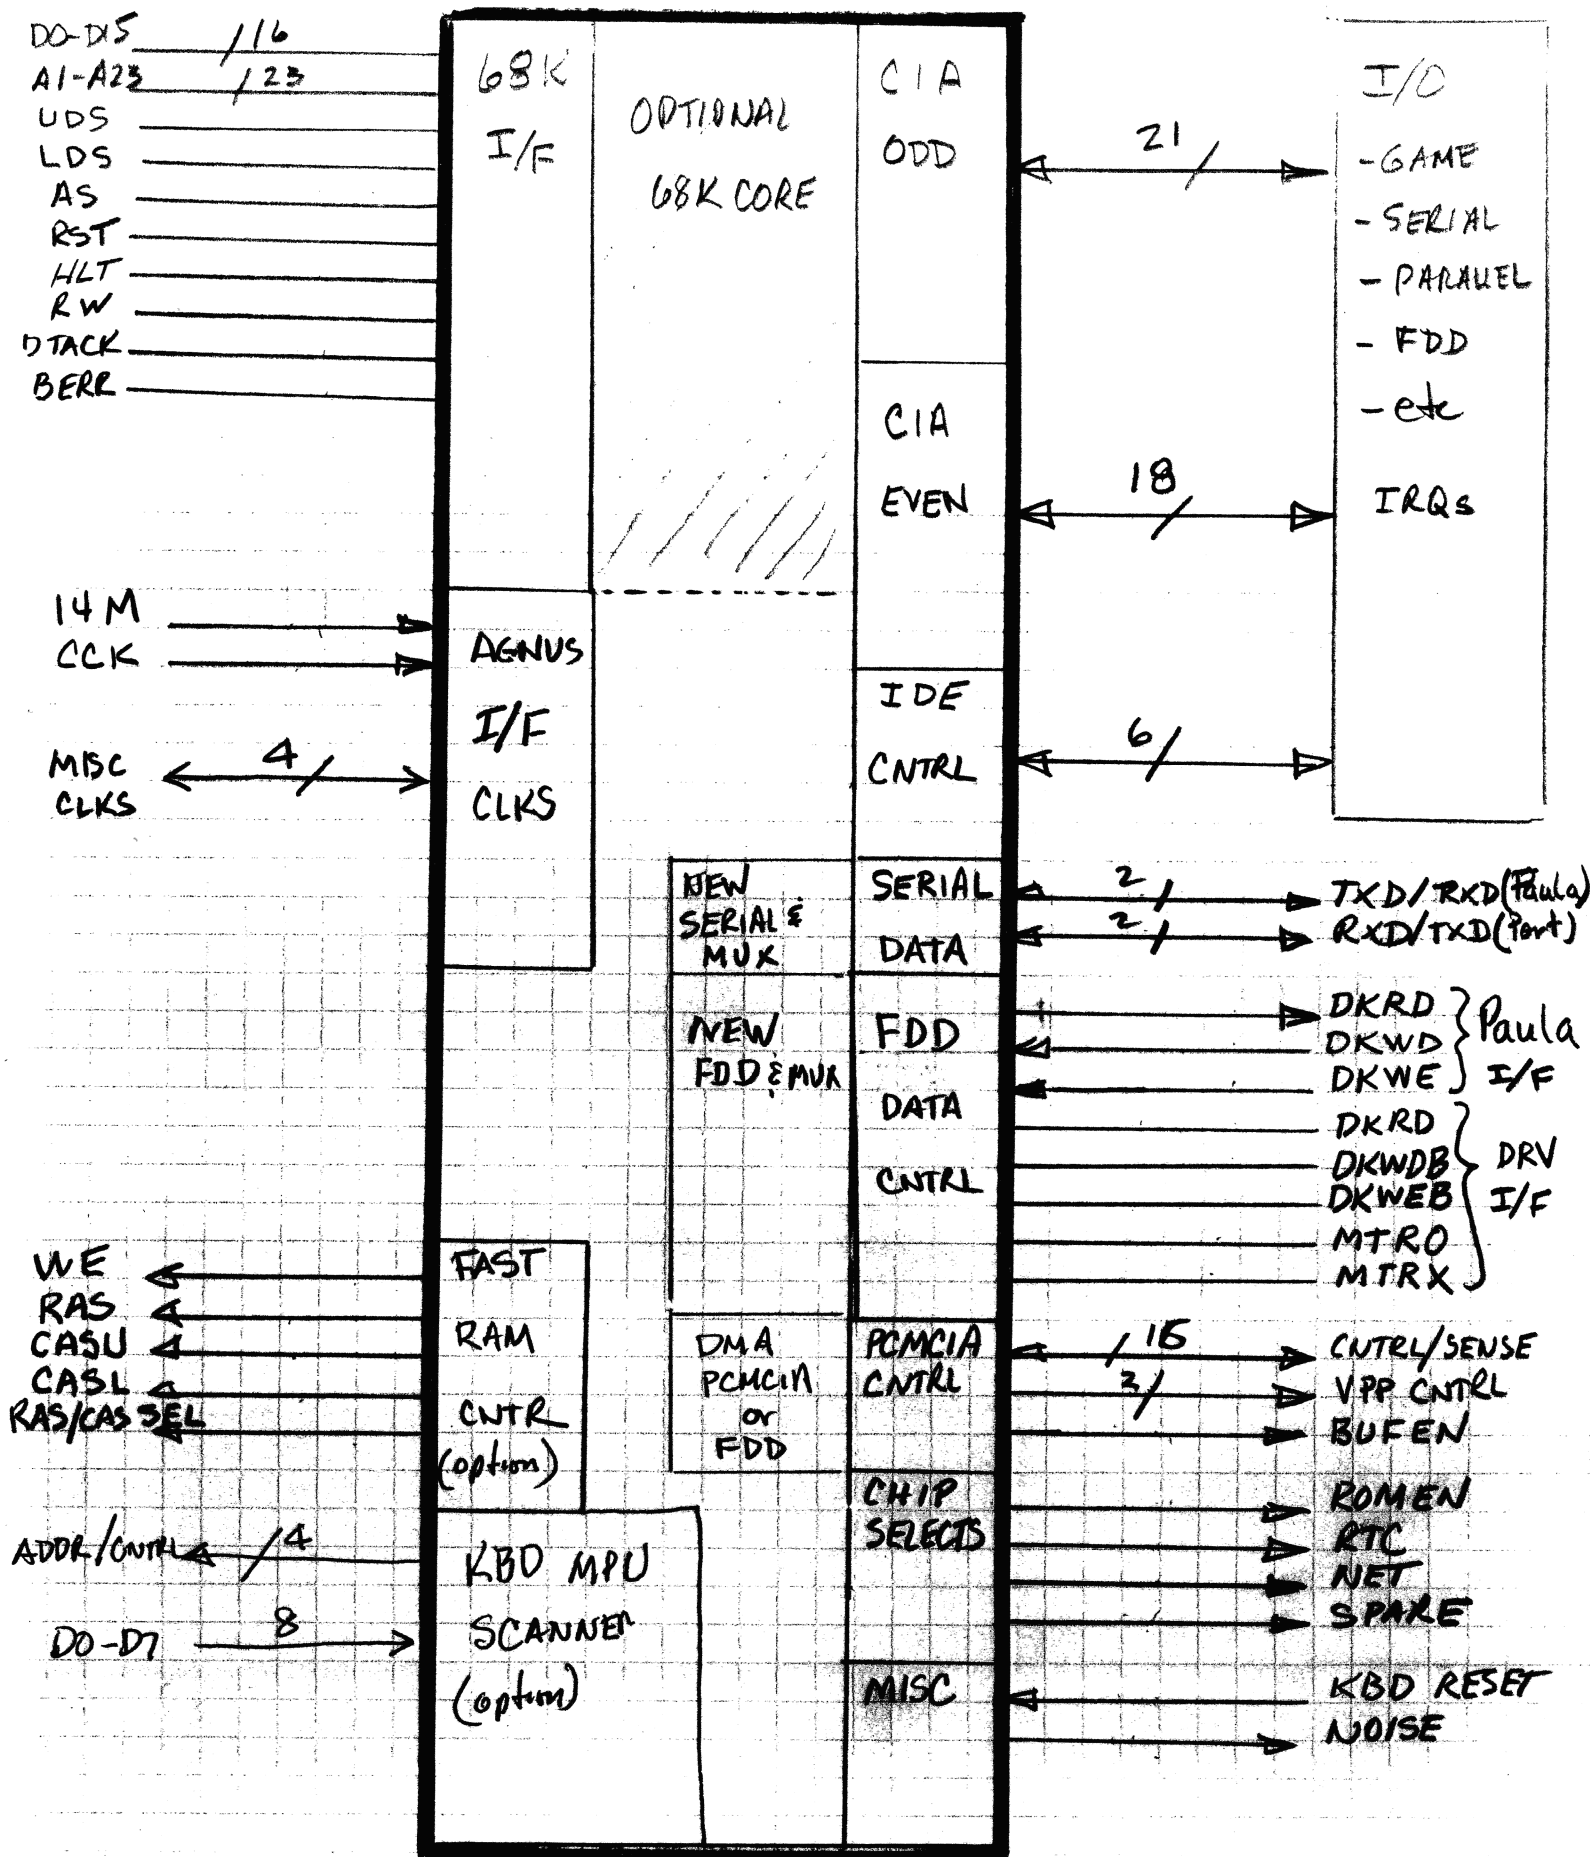 D0-D15
/16
A1-A23
/23
UDS
LDS
AS
RST
HLT
RW
DTACK
BERR
14M
CCK
MISC
CLKS
4/
WE
RAS
CASU
CASL
RAS/CAS SEL
ADDR/CNTRL
/4
D0-D7
8
68K
I/F
OPTIONAL
68K CORE
AGNUS
I/F
CLKS
NEW
SERIAL &
MUX
NEW
FDD & MUX
FAST
RAM
CNTR
(option)
DMA
PCMCIA
or
FDD
KBD MPU
SCANNER
(option)
CIA
ODD
CIA
EVEN
IDE
CNTRL
SERIAL
DATA
FDD
DATA
CNTRL
PCMCIA
CNTRL
CHIP
SELECTS
MISC
21/
18/
6/
I/O
-GAME
-SERIAL
-PARALLEL
-FDD
-etc
IRQs
2/
TXD/RXD(Paula)
2/
RXD/TXD(Port)
DKRD
DKWD
DKWE
Paula
I/F
DKRD
DKWDB
DKWEB
MTRO
MTRX
DRV
I/F
/15
CNTRL/SENSE
VPP CNTRL
BUFEN
ROMEN
RTC
NET
SPARE
KBD RESET
NOISE